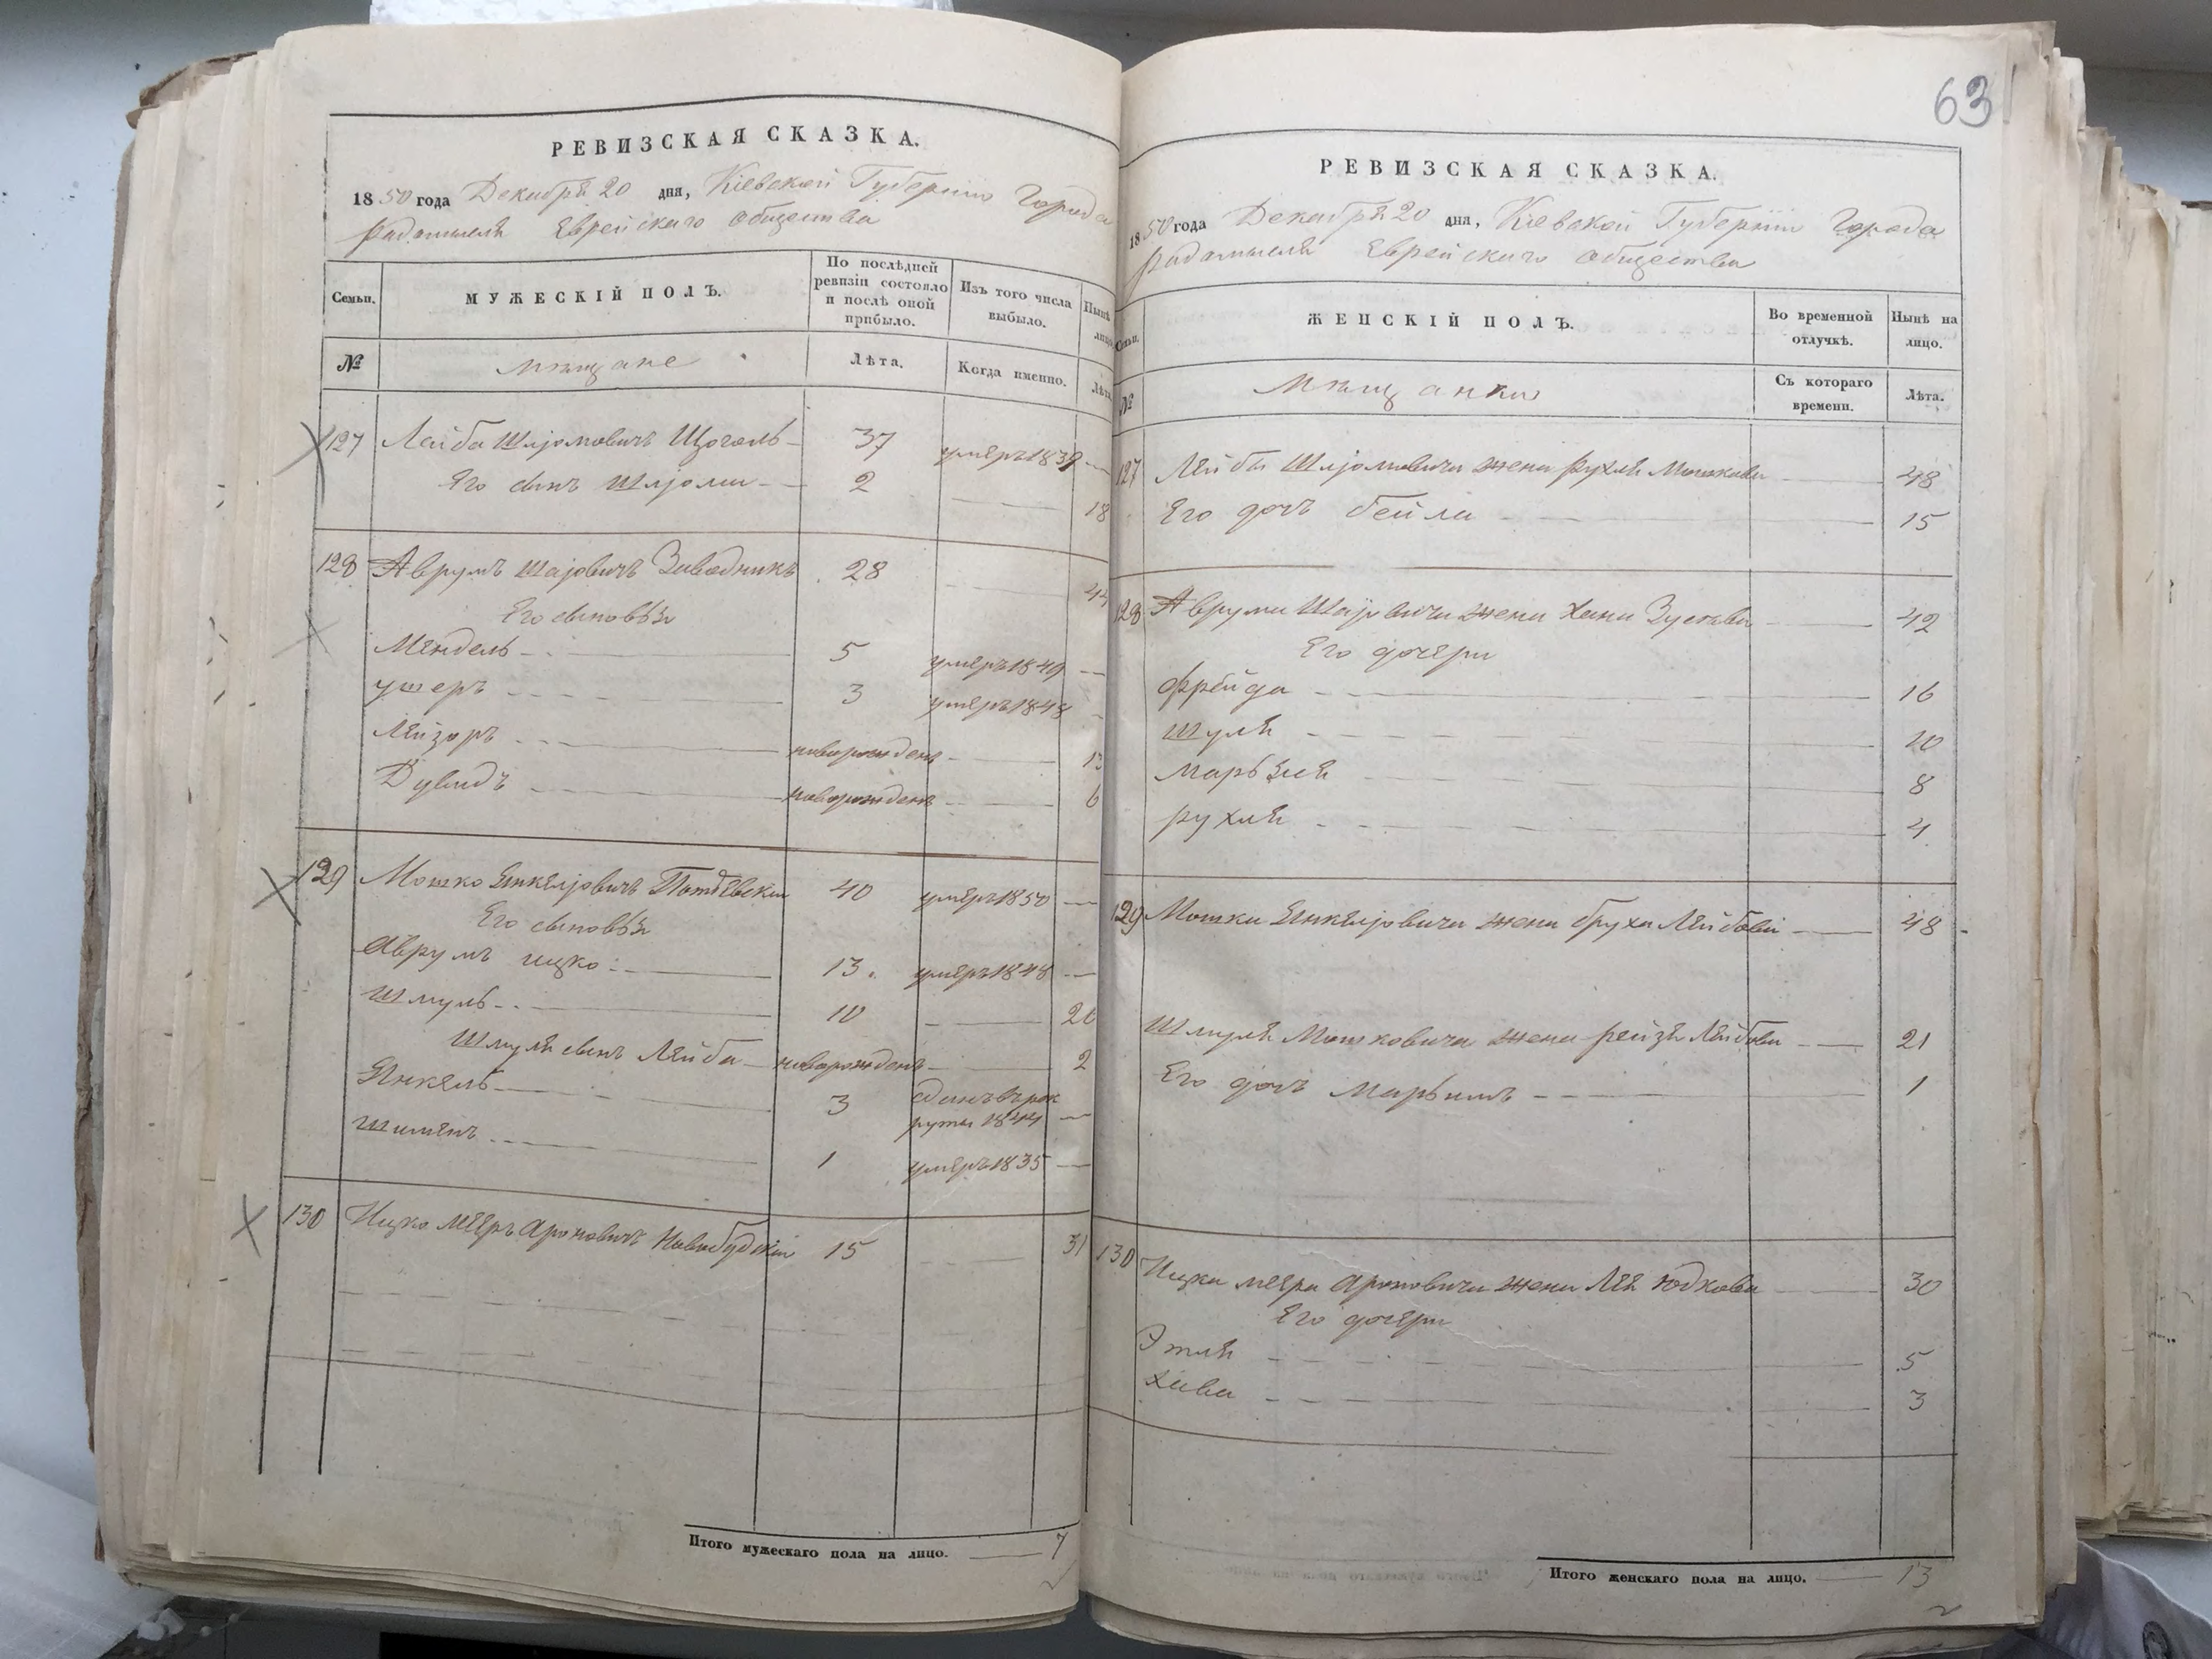 63
РЕВИЗСКАЯ СКАЗКА.
1850 года Декабря 20 дня, Кіевской Губерніи Города
Радомысля Еврейскаго общества
Семьи.
МУЖЕСКІЙ ПОЛЪ.
По послѣдней ревизіи состояло и послѣ оной прибыло.
Изъ того числа выбыло.
Нынѣ лицо
№
мѣщане
Лѣта.
Когда именно.
Лѣта
127 Лейба Шліомовичъ Щоголь 37 умеръ 1839 —
Его сынъ Шліома 2 — 18
128 Аврумъ Шаіовичъ Заводникъ 28 — 44
Его сыновья
Мендель 5 умеръ 1849 —
Ушеръ 3 умеръ 1848 —
Лейзоръ новорожденъ — 13
Дувидъ новорожденъ — 6
129 Мошко Янкеліовичъ 40 умеръ 1850 —
Его сыновья
Аврумъ Ицко 13 умеръ 1848 —
Шмуль 10 — 26
Шмуля сынъ Лейба новорожденъ — 2
Янкель 3 сданъ въ рек
руты 1844 —
Шименъ 1 умеръ 1835 —
130 Ицко Мееръ Ароновичъ Новобудскій 15 — 31
Итого мужескаго пола на лицо. — 7
РЕВИЗСКАЯ СКАЗКА.
1850 года Декабря 20 дня, Кіевской Губерніи Города
Радомысля Еврейскаго общества
Семьи.
ЖЕНСКІЙ ПОЛЪ.
Во временной отлучкѣ.
Нынѣ на лицо.
№
мѣщанки
Съ котораго времени.
Лѣта.
127 Лейбы Шліомовича жена Рухля Мошкова — 48
Его дочь Бейла — 15
128 Аврума Шаіовича жена Хана Зуселева — 42
Его дочери
Фрейда — 16
Шуля — 10
Марьяся — 8
Рухля — 4
129 Мошка Янкеліовича жена Бруха Лейбова — 48
Шмуля Мошковича жена Рейзя Лейбова — 21
Его дочь Марьимъ — 1
130 Ицка Меера Ароновича жена Лея Юдкова — 30
Его дочери
Этля — 5
Хава — 3
Итого женскаго пола на лицо. — 13